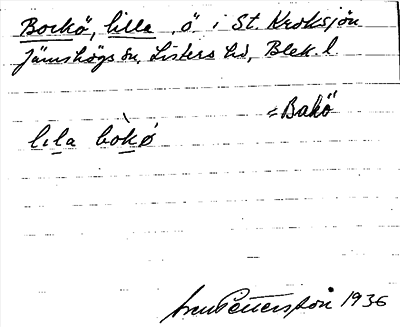 Bockö, lilla, ö i St. Kroksjön
Jämshögs sn, Listers hd, Blek. l.
= Bakö
lila bòkø
Pettersson 1936